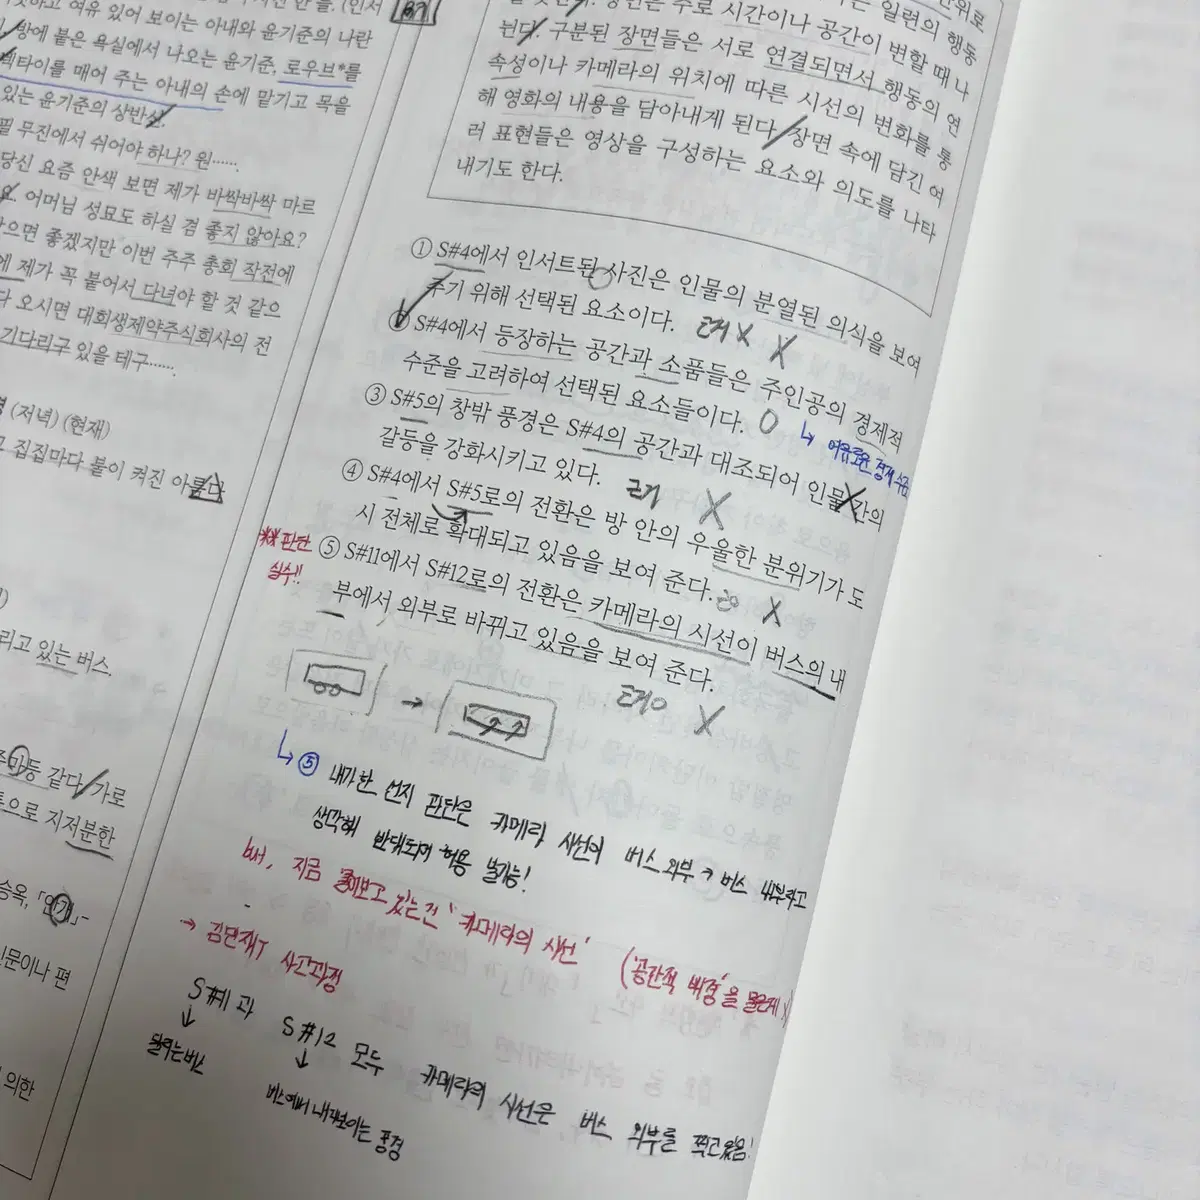 하고 여유 있어 보이는 아내와 윤기준의 나란
방에 붙은 욕실에서 나오는 윤기준, 로우브*를
넥타이를 매어 주는 아내의 손에 맡기고 목을
있는 윤기준의 상반신.
필 무진에서 쉬어야 하나? 원……
당신 요즘 안색 보면 제가 바싹바싹 마르
요. 어머님 성묘도 하실 겸 좋지 않아요?
으면 좋겠지만 이번 주주 총회 작전에
에 제가 꼭 붙어서 다녀야 할 것 같으
다 오시면 대회생제약주식회사의 전
기다리구 있을 테구…….
(저녁) (현재)
집집마다 불이 켜진 아
리고 있는 버스.
등 같다. 가로
으로 지저분한
승옥, 「안개」-
인문이나 편
의한
는 일련의 행동
시간이나 공간이 변할 때 나
뉜다. 구분된 장면들은 서로 연결되면서 행동의 연
속성이나 카메라의 위치에 따른 시선의 변화를 통
해 영화의 내용을 담아내게 된다. 장면 속에 담긴 여
러 표현들은 영상을 구성하는 요소와 의도를 나타
내기도 한다.
① S#4에서 인서트된 사진은 인물의 분열된 의식을 보여
주기 위해 선택된 요소이다. 근거 X X
S#4에서 등장하는 공간과 소품들은 주인공의 경제적
수준을 고려하여 선택된 요소들이다. O
↳ 여유로운 경제 수준
③ S#5의 창밖 풍경은 S#4의 공간과 대조되어 인물 간의
갈등을 강화시키고 있다. 근거 X
④ S#4에서 S#5로의 전환은 방 안의 우울한 분위기가 도
시 전체로 확대되고 있음을 보여 준다. X
** 판단
실수!!
⑤ S#11에서 S#12로의 전환은 카메라의 시선이 버스의 내
부에서 외부로 바뀌고 있음을 보여 준다.
근거O X
→
↳ ⑤ 내가 한 선지 판단은 카메라 시선이 버스 외부 → 버스 내부라고
생각해 반대되어 허용 불가능!
but, 지금 물어보고 있는건 '카메라의 시선' ('공간적 배경'을 물은게 X)
→ 김민재T 사고과정
S#11과 S#12 모두 카메라의 시선은 버스 외부를 찍고있음!
↓ ↓
달리는버스
버스에서 내다보이는 풍경